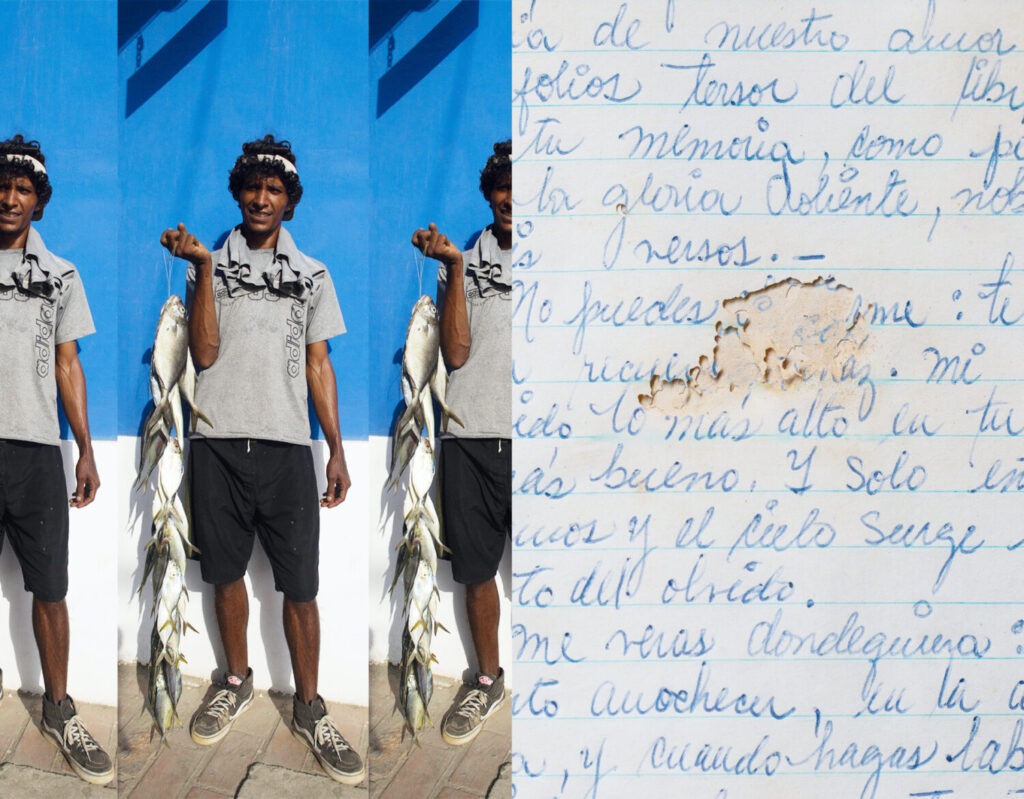 adidas
ia de nuestro amor
folios tersos del libr
tu memoria, como pi
la gloria doliente, nob
is versos.-
No puedes me : te
mi
ido lo más alto en tu
ás bueno. Y solo en
mos y el cielo surge
to del olvido.
me veras dondequiera :
to anochecer, en la
a, y cuando hagas lab